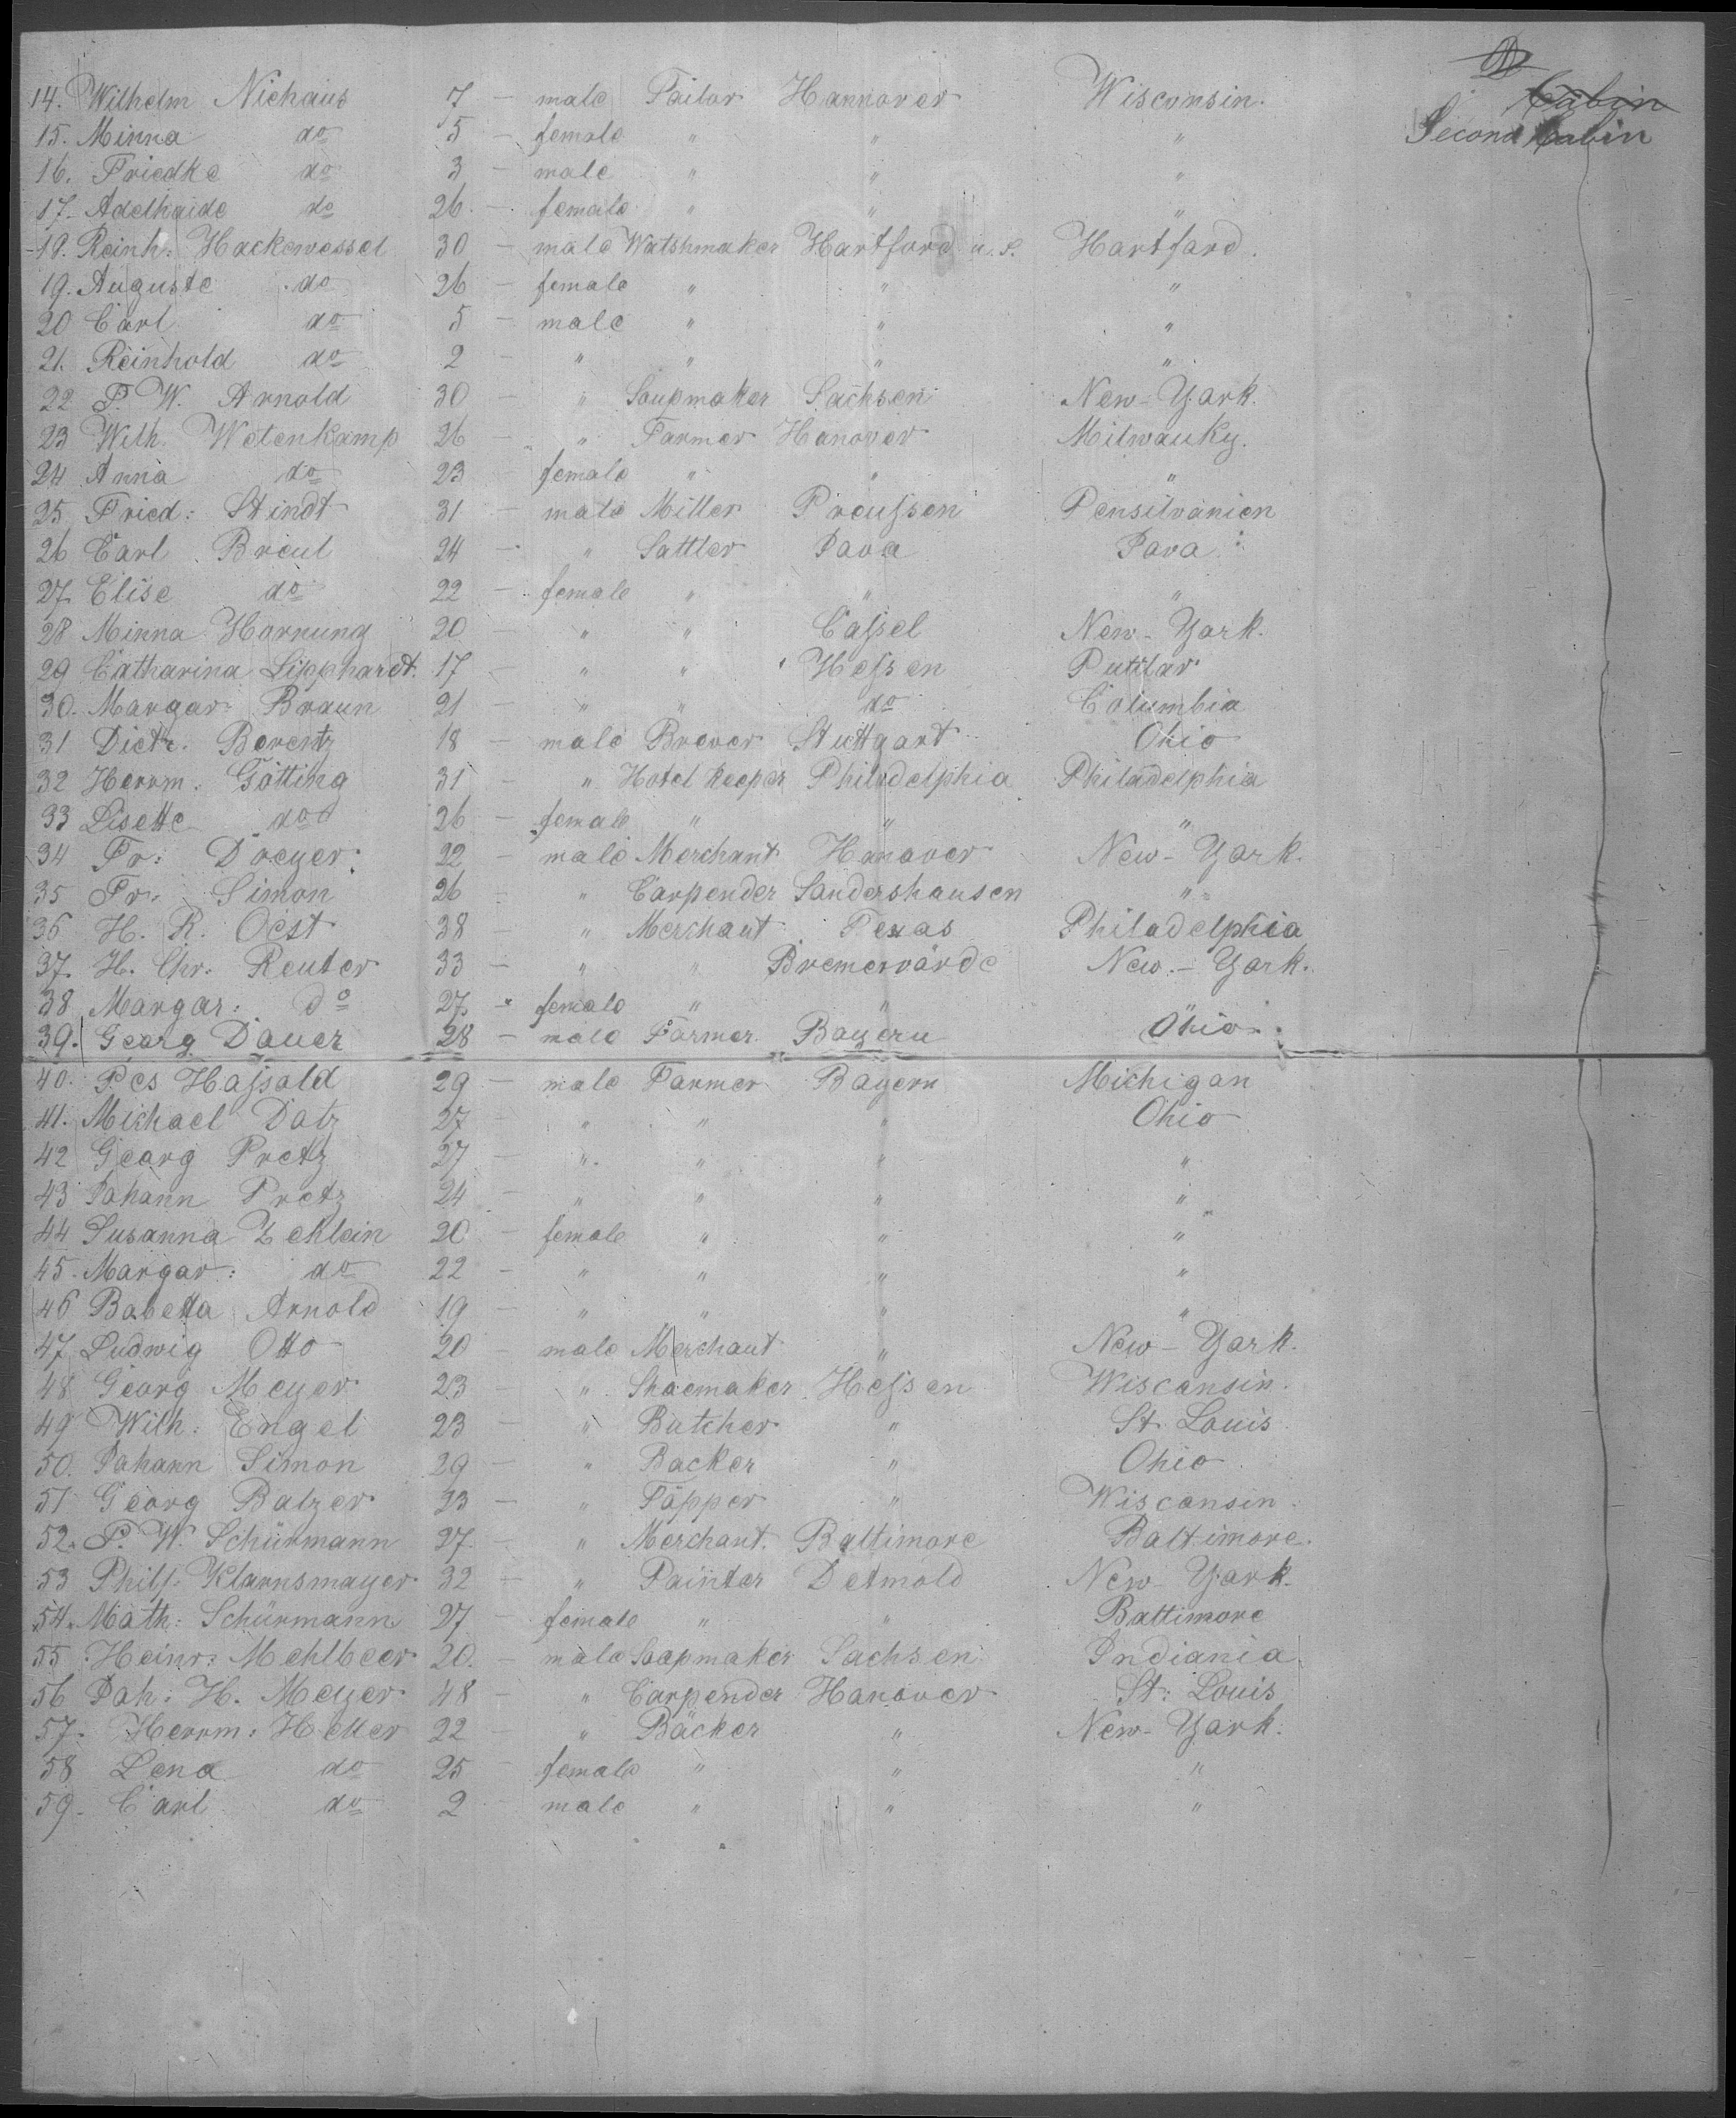 Cabin
14. Wilhelm Niehaus 7 — male Tailor Hannover Wisconsin. Second Cabin
15. Minna do 5 — female " " "
16. Friedke do 3 — male " " "
17. Adelhaide do 26 — female " " "
18. Reinh: Hackewessel 30 — male Watshmaker Hartford u. S. Hartford.
19. Auguste do 26 — female " " "
20 Carl do 5 — male " " "
21. Reinhold do 2 — " " " "
22 F. W. Arnold 30 — " Soupmaker Sachsen New-York.
23 Wilh. Wetenkamp 26 — " Farmer Hanover Milwauky.
24 Anna do 23 — female " " "
25 Fried: Stindt 31 — male Miller Preussen Pensilvanien
26 Carl Breul 24 — " Sattler Java Java
27 Elise do 22 — female " " "
28 Minna Hornung 20 — " " Cassel New-York.
29 Catharina Lipphardt. 17 — " " Hessen
30. Margar: Braun 21 — " " do Columbia
31 Dietr. Berentz 18 — male Brewer Stuttgart Ohio
32 Herrm. Götting 31 — " Hotel keeper Philadelphia Philadelphia
33 Lisette do 26 — female " " "
34 Fr: Dreyer. 22 — male Merchant Hanover New-York.
35 Fr. Simon 26 — " Carpender Sandershausen "
36 H. R. Oest 38 — " Merchant Texas Philadelphia
37. H. Chr. Reuter 33 — " " Bremervörde New-York.
38 Margar: do 27. — female " "
39. Georg Dauer 28 — male Farmer Bayern Ohio
40. Hassold 29 — male Farmer Bayern Michigan
41. Michael Datz 27 — " " " Ohio
42 Georg Pretz 27 — " " " "
43 Johann Pretz 24 — " " " "
44 Susanna Zehlein 20 — female " " "
45. Margar: do 22 — " " " "
46 Babetta Arnold 19 — " " " "
47 Ludwig Otto 20 — male Merchant " New-York.
48 Georg Meyer 23 — " Shoemaker Hessen Wisconsin.
49 Wilh: Engel 23 — " Butcher " St. Louis
50. Johann Simon 29 — " Backer " Ohio
51 Georg Balzer 33 — " Töpper " Wisconsin.
52. F. W. Schürmann 27. — " Merchant. Baltimore Baltimore.
53 Philp: Klarnsmayer 32 — " Painter Detmold New-York.
54. Math: Schürmann 27 — female " " Baltimore
55 Heinr: Mehlbeer 20. — male Soapmaker Sachsen Indiania.
56 Joh: H. Meyer 48 — " Carpender Hanover St: Louis
57. Herrm: Heller 22 — " Bäcker " New-York.
58 Lena do 25 — female " " "
59. Carl do 2 — male " " "